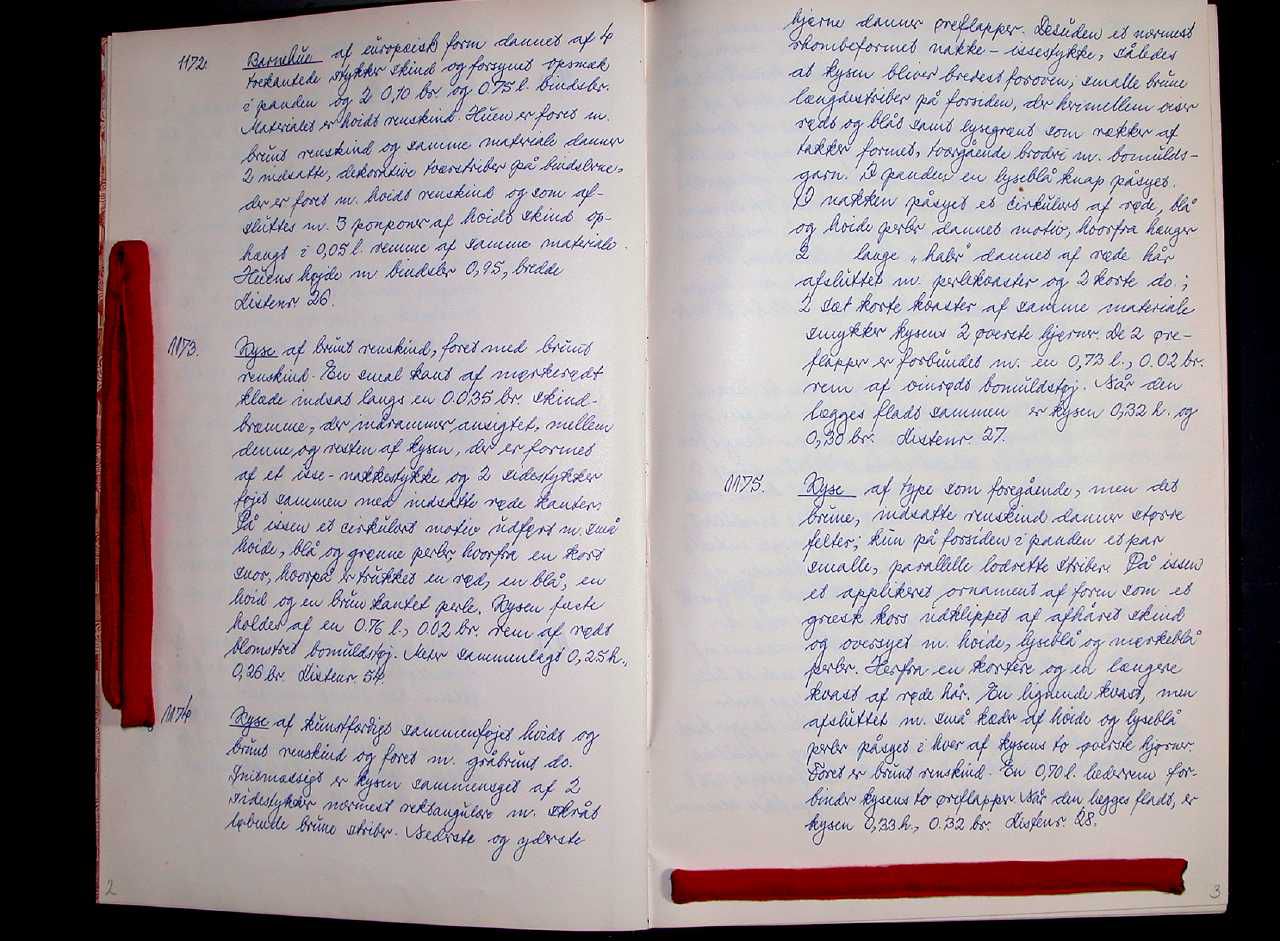 1172. Barnehue af europæisk form dannet af 4
trekantede stykker skind og forsynet opsmøk
i panden og 2 0,10 br. og 0.75 l. bindebr.
Materialet er hvidt renskind. Huen er foret m.
brunt renskind og samme materiale danner
2 indsatte, dekorative tværstriber på bindebrne,
der er foret m. hvidt renskind og som af-
sluttes m. 3 ponponer af hvidt skind op-
hængt i 0,05 l. remme af samme materiale.
Huens højde m. bindebr 0,95, bredde
Listenr. 26.
1173. Kyse af brunt renskind, foret med brunt
renskind. En smal kant af mørkerødt
klæde indsat langs en 0.035 br. skind-
bræmme, der indrammer ansigtet, mellem
denne og resten af kysen, der er formet
af et isse-nakkestykke og 2 sidestykker
føjet sammen med indsatte røde kanter.
På issen et cirkulært motiv udført m. små
hvide, blå og grønne perler, hvorfra en kort
snor, hvorpå er trukket en rød, en blå, en
hvid og en brun kantet perle. Kysen faste
holdes af en 0.76 l., 0.02 br. rem af rødt
blomstret bomuldstøj. Mærk sammenlagt 0,25 h.,
0,26 br. Listenr. 54.
1174 Kyse af kunstfærdigt sammenføjet hvidt og
brunt renskind og foret m. gråbrunt do.
Snitmæssigt er kysen sammensyet af 2
sidestykker nærmest rektangulære m. skråt
løbende brune striber. Nederste og yderste
2
hjørne danner øreflapper. Desuden et nærmest
rhombeformet nakke-issestykke, således
at kysen bliver bredest foroven; smalle brune
længdestriber på forsiden, der herimellem viser
rødt og blåt samt lysegrønt som rækker af
takker formet, tværgående brodri m. bomulds-
garn. I panden en lyseblå knap påsyet.
I nakken påsyet et cirkulært af røde, blå
og hvide perler dannet motiv, hvorfra hænger
2 lange "haler" dannet af røde hår
afsluttet m. perlekvaster og 2 korte do.;
2 sæt korte kvaster af samme materiale
smykker kysens 2 øverste hjørner. De 2 øre-
flapper er forbundet m. en 0,73 l., 0.02 br.
rem af omrødt bomuldstøj. Når den
lægges fladt sammen er kysen 0,32 h. og
0,30 br. Listenr. 27.
1175. Kyse af type som foregående, men det
brune, indsatte renskind danner større
felter; kun på forsiden i panden et par
smalle, parallelle lodrette striber. På issen
et appliceret ornament af form som et
græsk kors udklippet af afhåret skind
og oversyet m. hvide, lyseblå og mørkeblå
perler. Herfra en kortere og en længere
kvast af røde hår. En lignende kvast, men
afsluttet m. små kæder af hvide og lyseblå
perler påsyet i hver af kysens to øverste hjørner.
Foret er brunt renskind. En 0,70 l. læderrem for-
binder kysens to øreflapper. Når den lægges fladt, er
kysen 0,33 h., 0.32 br. Listenr. 28.
3